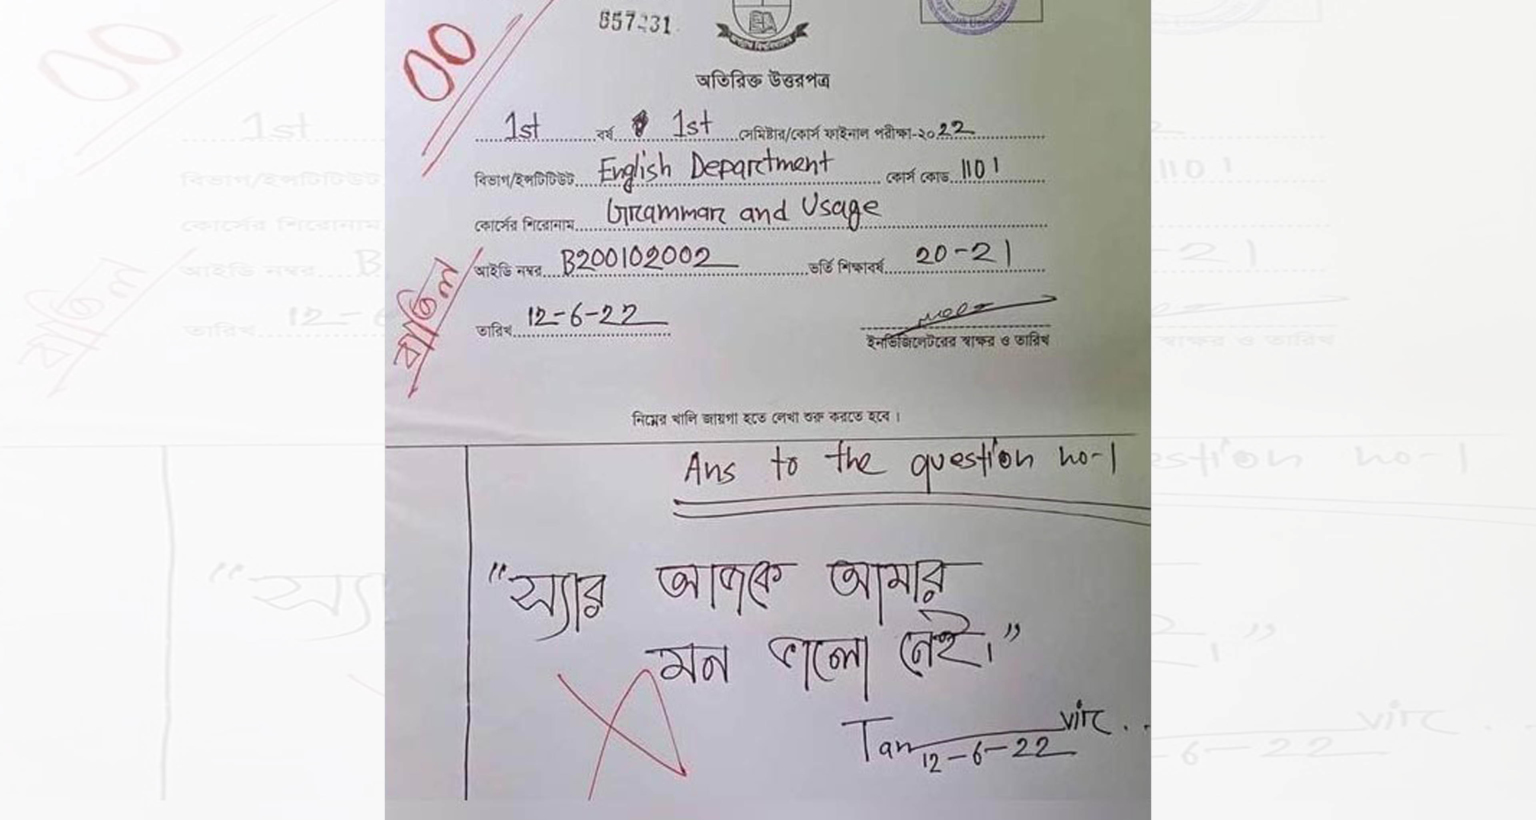 857231
অতিরিক্ত উত্তরপত্র
1st বর্ষ 1st সেমিষ্টার/কোর্স ফাইনাল পরীক্ষা-২০22
00
বিভাগ/ইন্সটিটিউট English Department কোর্স কোড 1101
কোর্সের শিরোনাম Grammar and Usage
আইডি নম্বর B200102002 ভর্তি শিক্ষাবর্ষ 20-21
বাতিল
তারিখ 12-6-22
ইনভিজিলেটরের স্বাক্ষর ও তারিখ
নিম্নের খালি জায়গা হতে লেখা শুরু করতে হবে।
Ans to the question no-1
"স্যার আজকে আমার
মন ভালো নেই।"
Tan vir..
12-6-22